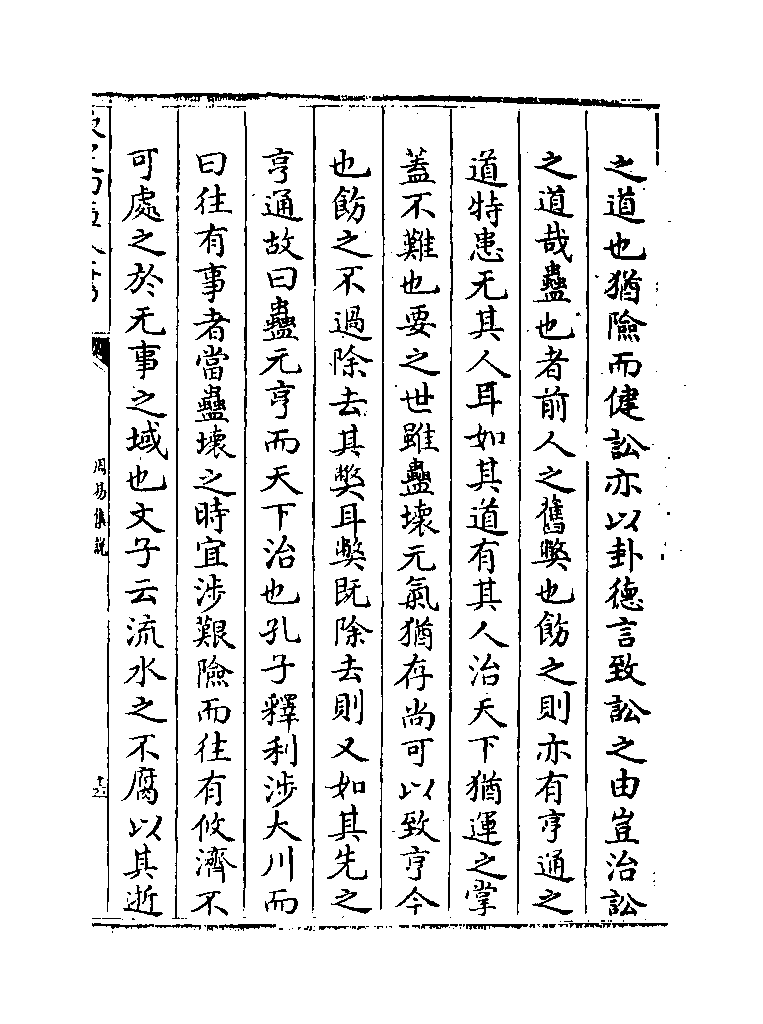 之道也猶險而健訟亦以卦德言致訟之由豈治訟
之道哉蠱也者前人之舊弊也飭之則亦有亨通之
道特患无其人耳如其道有其人治天下猶運之掌
蓋不難也要之世雖蠱壊元氣猶存尚可以致亨今
也飭之不過除去其獘耳獘既除去則又如其先之
亨通故曰蠱元亨而天下治也孔子釋利涉大川而
曰往有事者當蠱壊之時宜涉艱險而往有攸濟不
可處之於无事之域也文子云流水之不腐以其逝
周易集說